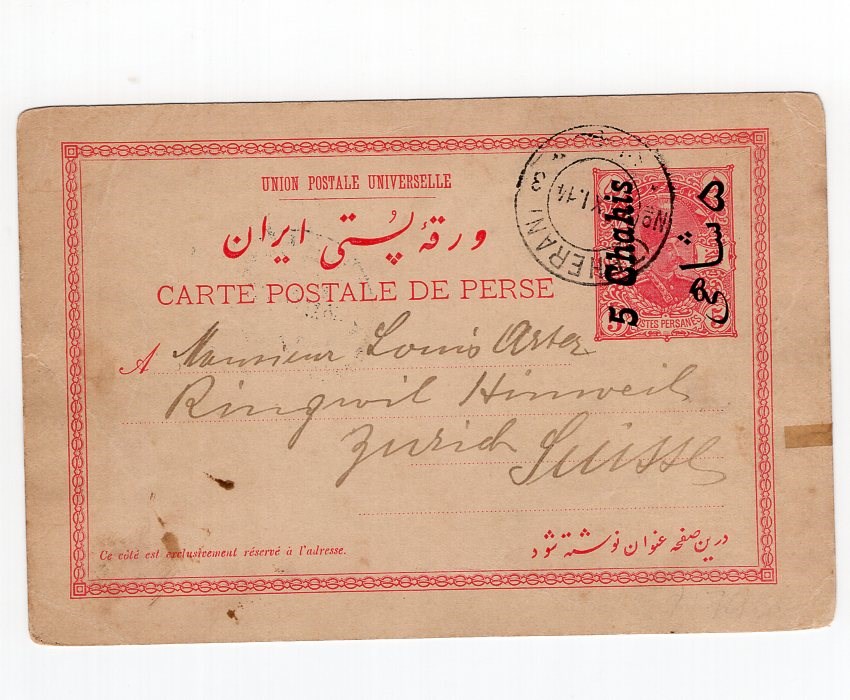 UNION POSTALE UNIVERSELLE
ورقهٔ پُستی ایران
CARTE POSTALE DE PERSE
5 Chahis
۵ شاهی
TEHERAN
No 3
XI.14
POSTES PERSANES
5
A Monsieur Louis Arter
Ringwil Hinweil
Zurich Suisse
Ce côté est exclusivement réservé à l'adresse.
درین صفحه عنوان نوشته شود